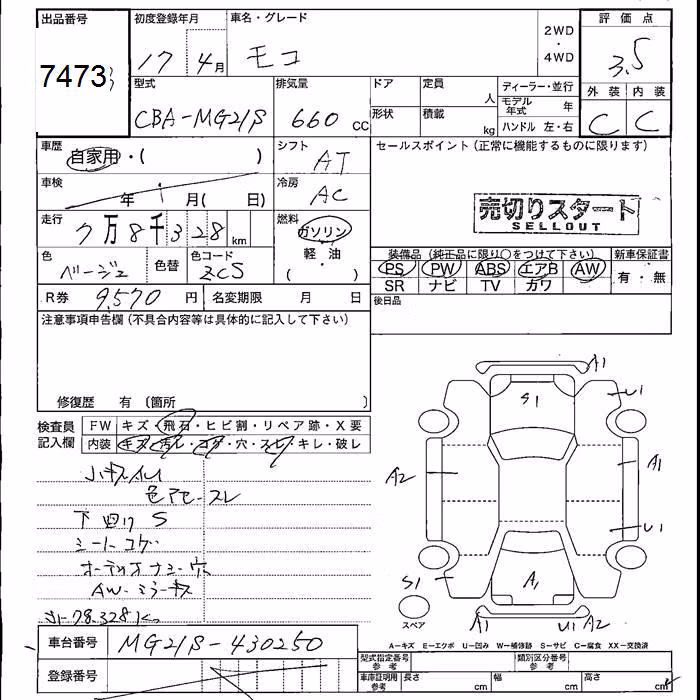 出品番号 初度登録年月 車名・グレード 2WD・4WD 評価点
7473 17年4月 モコ 3.5
型式 排気量 ドア 定員 人 ディーラー・並行 外装 内装
CBA-MG21S 660cc 形状 積載 kg モデル年式 年 C C
ハンドル 左・右
車歴 自家用・( ) シフト AT セールスポイント(正常に機能するものに限ります)
車検 年 月( 日) 冷房 AC
売切りスタート
SELLOUT
走行 7万8千328km 燃料 ガソリン
軽油
( )
色 ベージュ 色替 色コード 装備品(純正品に限り○をつけて下さい) 新車保証書
PS PW ABS エアB AW 有・無
SR ナビ TV カワ
R券 9,570円 名変期限 月 日 後日品
注意事項申告欄(不具合内容等は具体的に記入して下さい)
修復歴 有 〔箇所 〕
検査員記入欄 FW キズ・飛石・ヒビ割・リペア跡・X要
内装 キズ・汚レ・コゲ・穴・スレ・キレ・破レ
小キズ凹
色アセースレ
下回りS
シートコゲ
オーディオナシー穴
AW-ミラーキズ
78.328k
A1
S1
U1
A2
A1
U1
S1
A1
スペア
A1
U1 A2
A-キズ E-エクボ U-凹み W-補修跡 S-サビ C-腐食 XX-交換済
車台番号 MG21S-430250 型式指定番号参考 類別区分番号参考
登録番号 車庫証明用参考 長さ cm 幅 cm 高さ cm